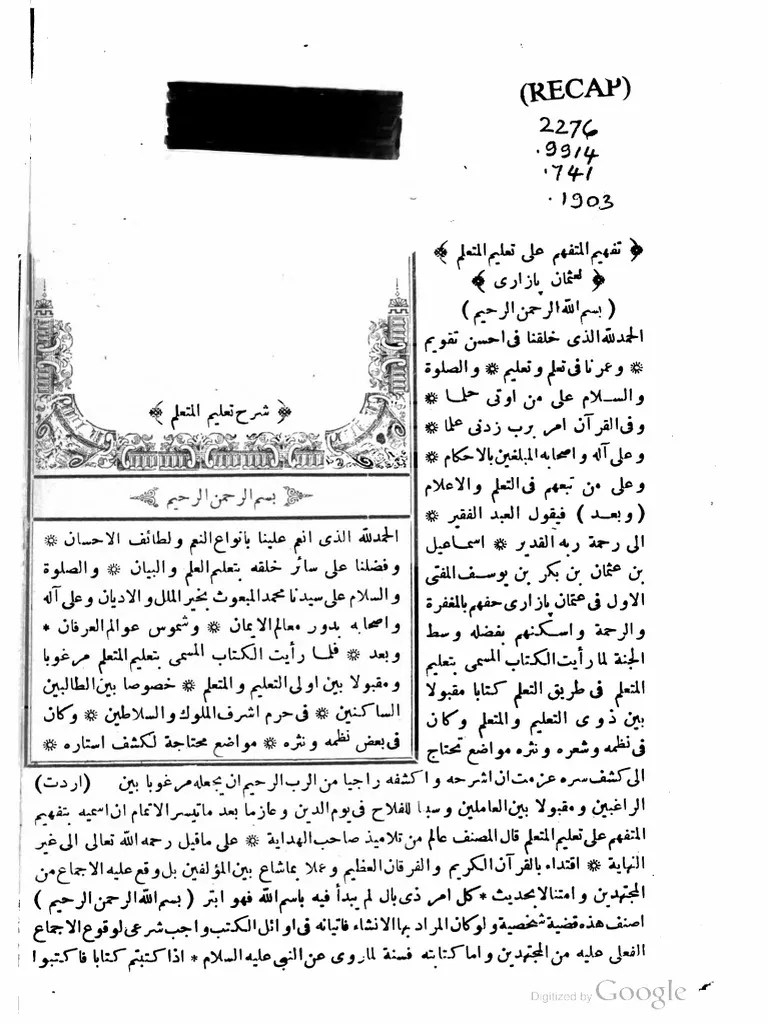 (RECAP)
2276
.9914
.741
.1903
﴿ تفهيم المتفهم على تعليم المتعلم ﴾
﴿ لعثمان پازارى ﴾
( بسم الله الرحمن الرحيم )
الحمد لله الذى خلقنا فى احسن تقويم
❊ وعمرنا فى تعلم وتعليم ❊ والصلوة
والسلام على من اوتى حلما ❊
وفى القرآن امر برب زدنى علما ❊
وعلى آله واصحابه المبلغين بالاحكام ❊
وعلى من تبعهم فى التعلم والاعلام
( وبعد ) فيقول العبد الفقير ❊
الى رحمة ربه القدير ❊ اسماعيل
بن عثمان بن بكر بن يوسف المفتى
الاول فى عثمان پازارى حفهم بالمغفرة
والرحمة واسكنهم بفضله وسط
الجنة لما رأيت الكتاب المسمى بتعليم
المتعلم فى طريق التعلم كتابا مقبولا
بين ذوى التعليم والمتعلم وكان
فى نظمه وشعره ونثره مواضع تحتاج
﴿ شرح تعليم المتعلم ﴾
بسم الله الرحمن الرحيم
الحمد لله الذى انعم علينا بانواع النعم ولطائف الاحسان ❊
وفضلنا على سائر خلقه بتعليم العلم والبيان ❊ والصلوة
والسلام على سيدنا محمد المبعوث بخير الملل والاديان وعلى آله
واصحابه بدور معالم الايمان ❊ وشموس عوالم العرفان *
وبعد ❊ فلما رأيت الكتاب المسمى بتعليم المتعلم مرغوبا
ومقبولا بين اولى التعليم والمتعلم ❊ خصوصا بين الطالبين
الساكنين ❊ فى حرم اشرف الملوك والسلاطين ❊ وكان
فى بعض نظمه ونثره ❊ مواضع محتاجة لكشف استاره ❊
الى كشف سره عزمت ان اشرحه واكشفه راجيا من الرب الرحيم ان يجعله مرغوبا بين (اردت)
الراغبين ومقبولا بين العاملين وسببا للفلاح فى يوم الدين وعازما بعد ما تيسر الاتمام ان اسميه بتفهيم
المتفهم على تعليم المتعلم قال المصنف عالم من تلاميذ صاحب الهداية ❊ على ماقيل رحمه الله تعالى الى غير
النهاية ❊ اقتداء بالقرآن الكريم والفرقان العظيم وعملا بماشاع بين المؤلفين بل وقع عليه الاجماع من
المجتهدين وامتثالا بحديث * كل امر ذى بال لم يبدأ فيه باسم الله فهو ابتر ( بسم الله الرحمن الرحيم )
اصنف هذه قضية شخصية ولو كان المراد بها الانشاء فاتيانه فى اوائل الكتب واجب شرعى لوقوع الاجماع
الفعلى عليه من المجتهدين واما كتابته فسنة لما روى عن النبى عليه السلام * اذا كتبتم كتابا فاكتبوا
Digitized by Google